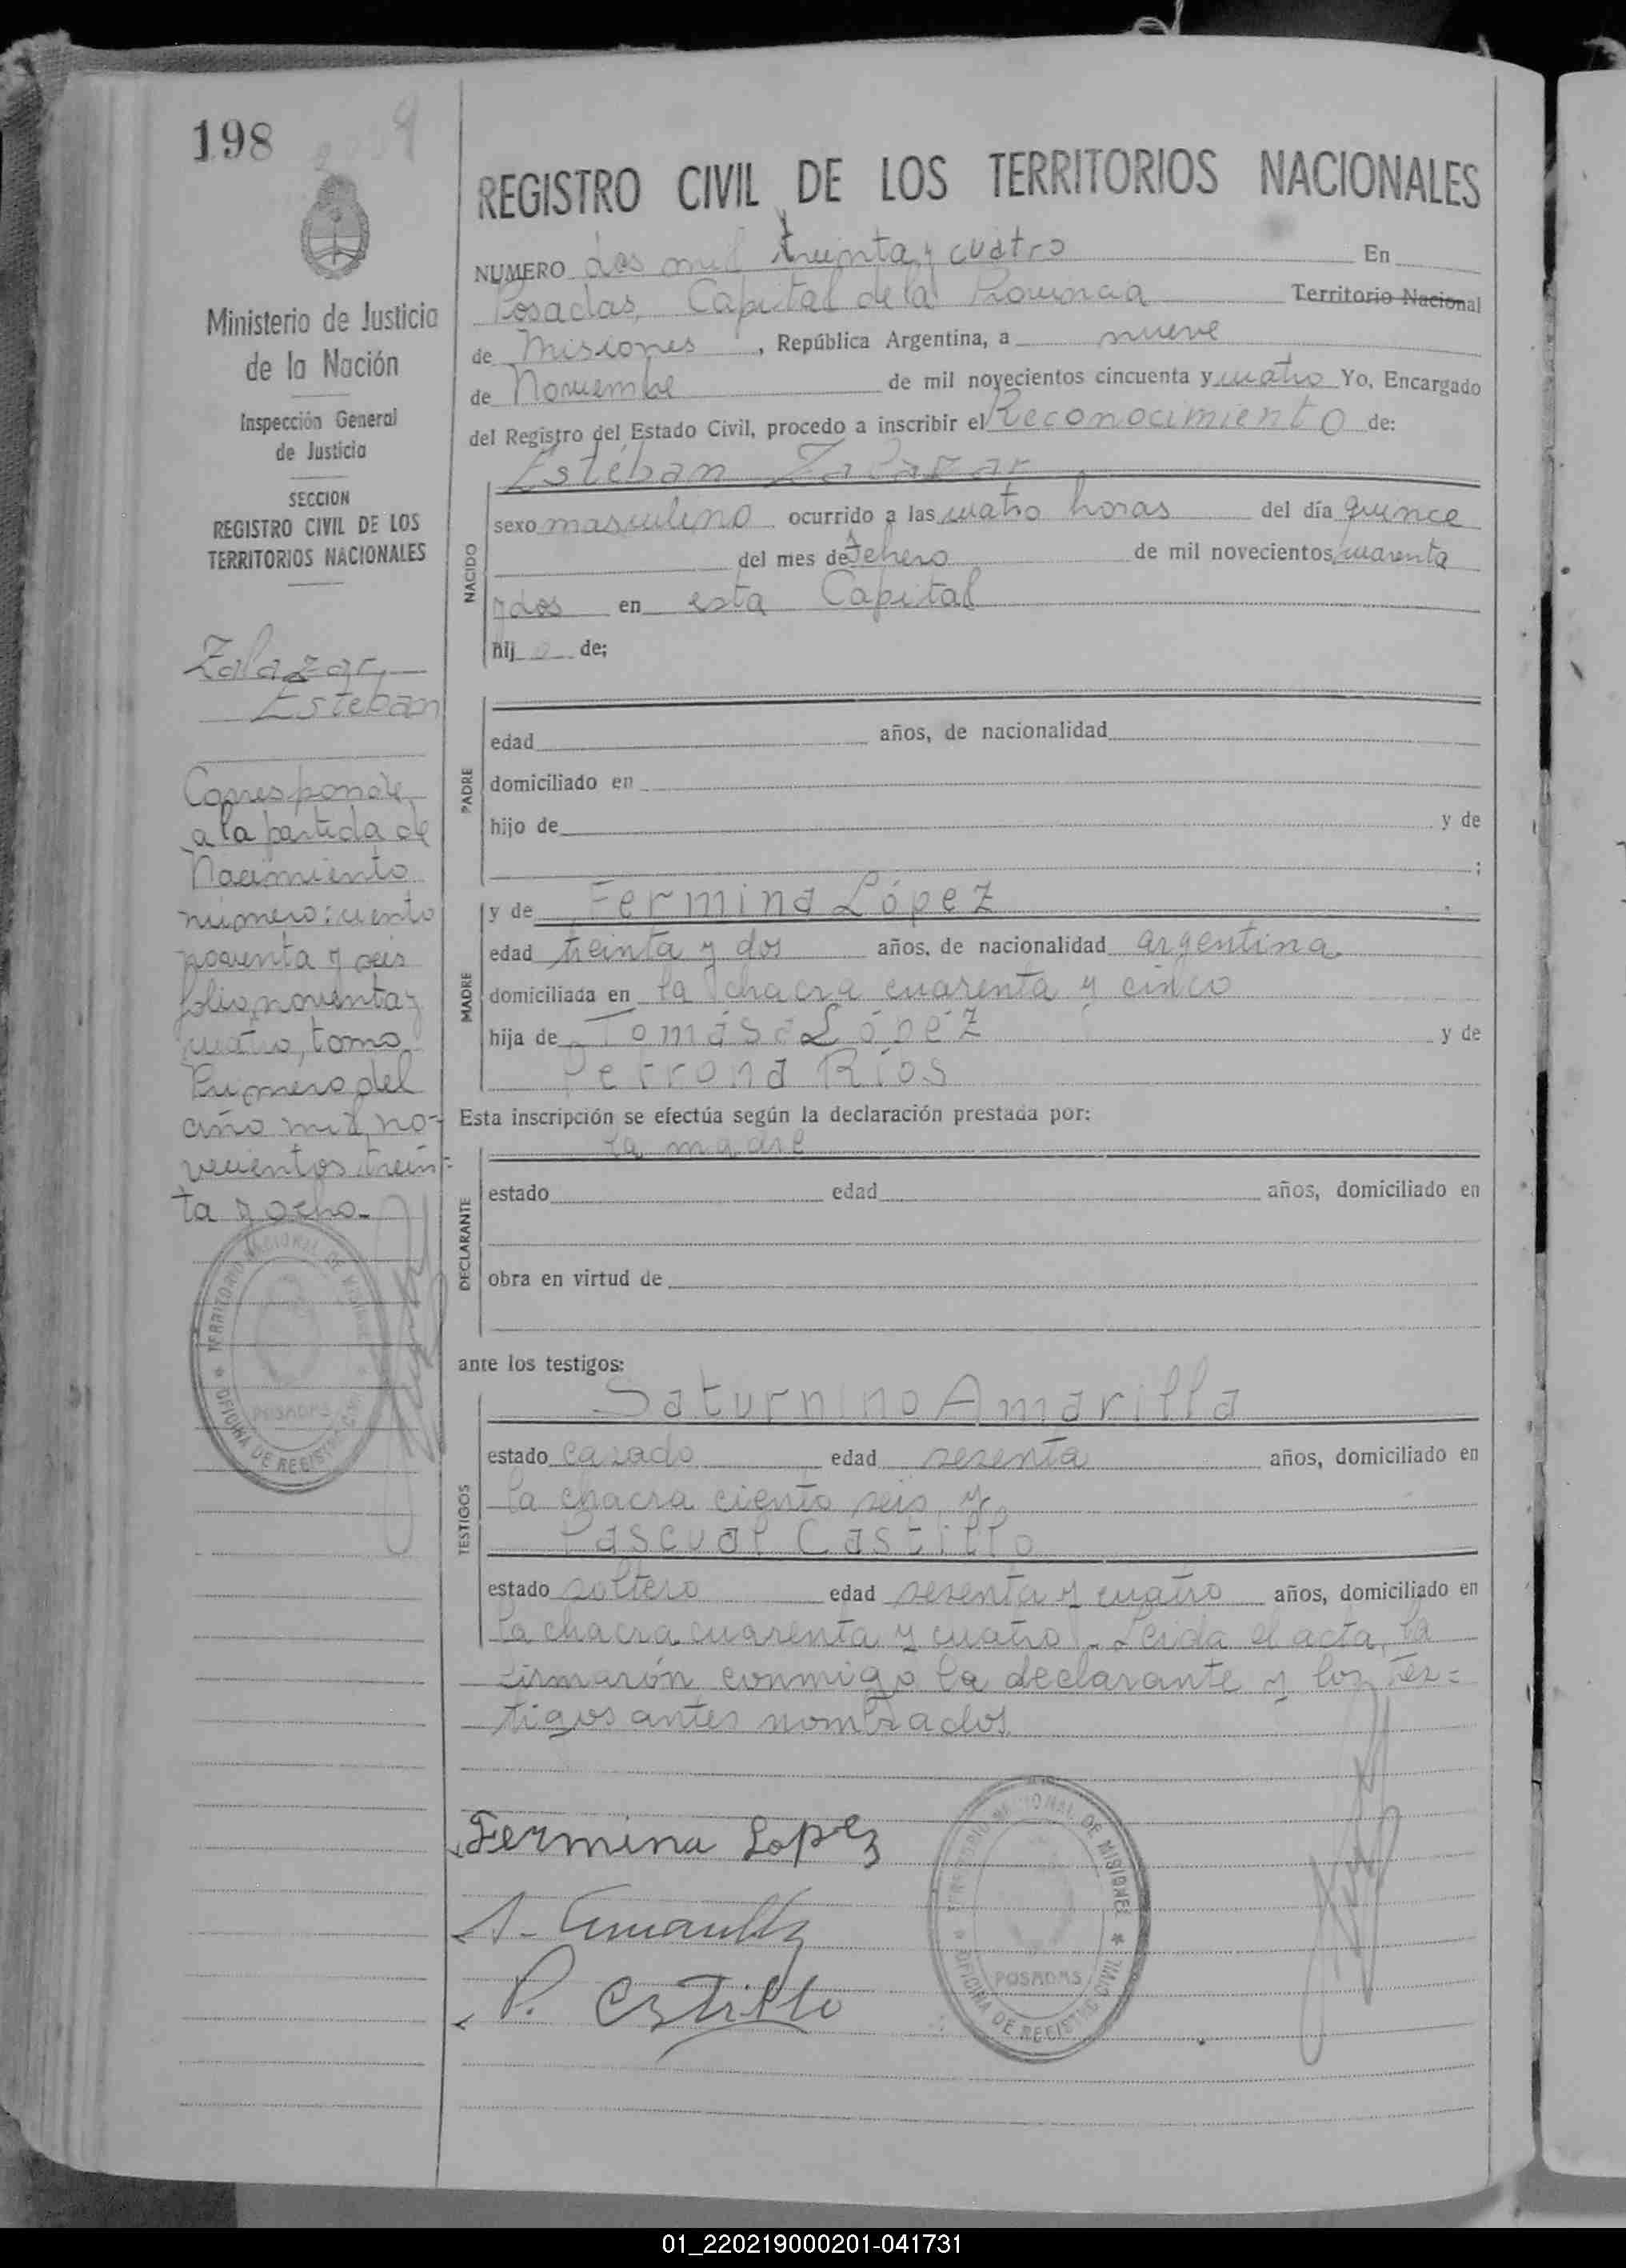 198
REGISTRO CIVIL DE LOS TERRITORIOS NACIONALES
Ministerio de Justicia
de la Nación
Inspección General
de Justicia
SECCION
REGISTRO CIVIL DE LOS
TERRITORIOS NACIONALES
Zalazar,
Esteban
Corresponde
a la partida de
Nacimiento
número: ciento
noventa y seis
folio noventa y
cuatro, tomo
Primero del
año mil no-
vecientos trein-
ta y ocho.-
TERRITORIO NACIONAL DE MISIONES
POSADAS
OFICINA DE REGISTRO CIVIL
NUMERO dos mil treinta y cuatro En
Posadas, Capital de la Provincia Territorio Nacional
de Misiones, República Argentina, a nueve
de Noviembre de mil novecientos cincuenta y cuatro Yo, Encargado
del Registro del Estado Civil, procedo a inscribir el Reconocimiento de:
NACIDO
Estéban Zalazar
sexo masculino ocurrido a las cuatro horas del día quince
del mes de Febrero de mil novecientos cuarenta
y dos en esta Capital
hij o de;
PADRE
edad años, de nacionalidad
domiciliado en
hijo de y de
;
MADRE
y de Fermina López
edad treinta y dos años, de nacionalidad argentina.
domiciliada en la chacra cuarenta y cinco
hija de Tomása López y de
Petrona Ríos
Esta inscripción se efectúa según la declaración prestada por:
DECLARANTE
la madre
estado edad años, domiciliado en
obra en virtud de
ante los testigos:
TESTIGOS
Saturnino Amarilla
estado casado edad sesenta años, domiciliado en
la chacra ciento seis y
Pascual Castillo
estado soltero edad sesenta y cuatro años, domiciliado en
la chacra cuarenta y cuatro.- Leída el acta, la
firmarón conmigo la declarante y los tes=
tigos antes nombrados.
Fermina Lopez
S. Amarilla
P. Castillo
TERRITORIO NACIONAL DE MISIONES
POSADAS
OFICINA DE REGISTRO CIVIL
01_220219000201-041731